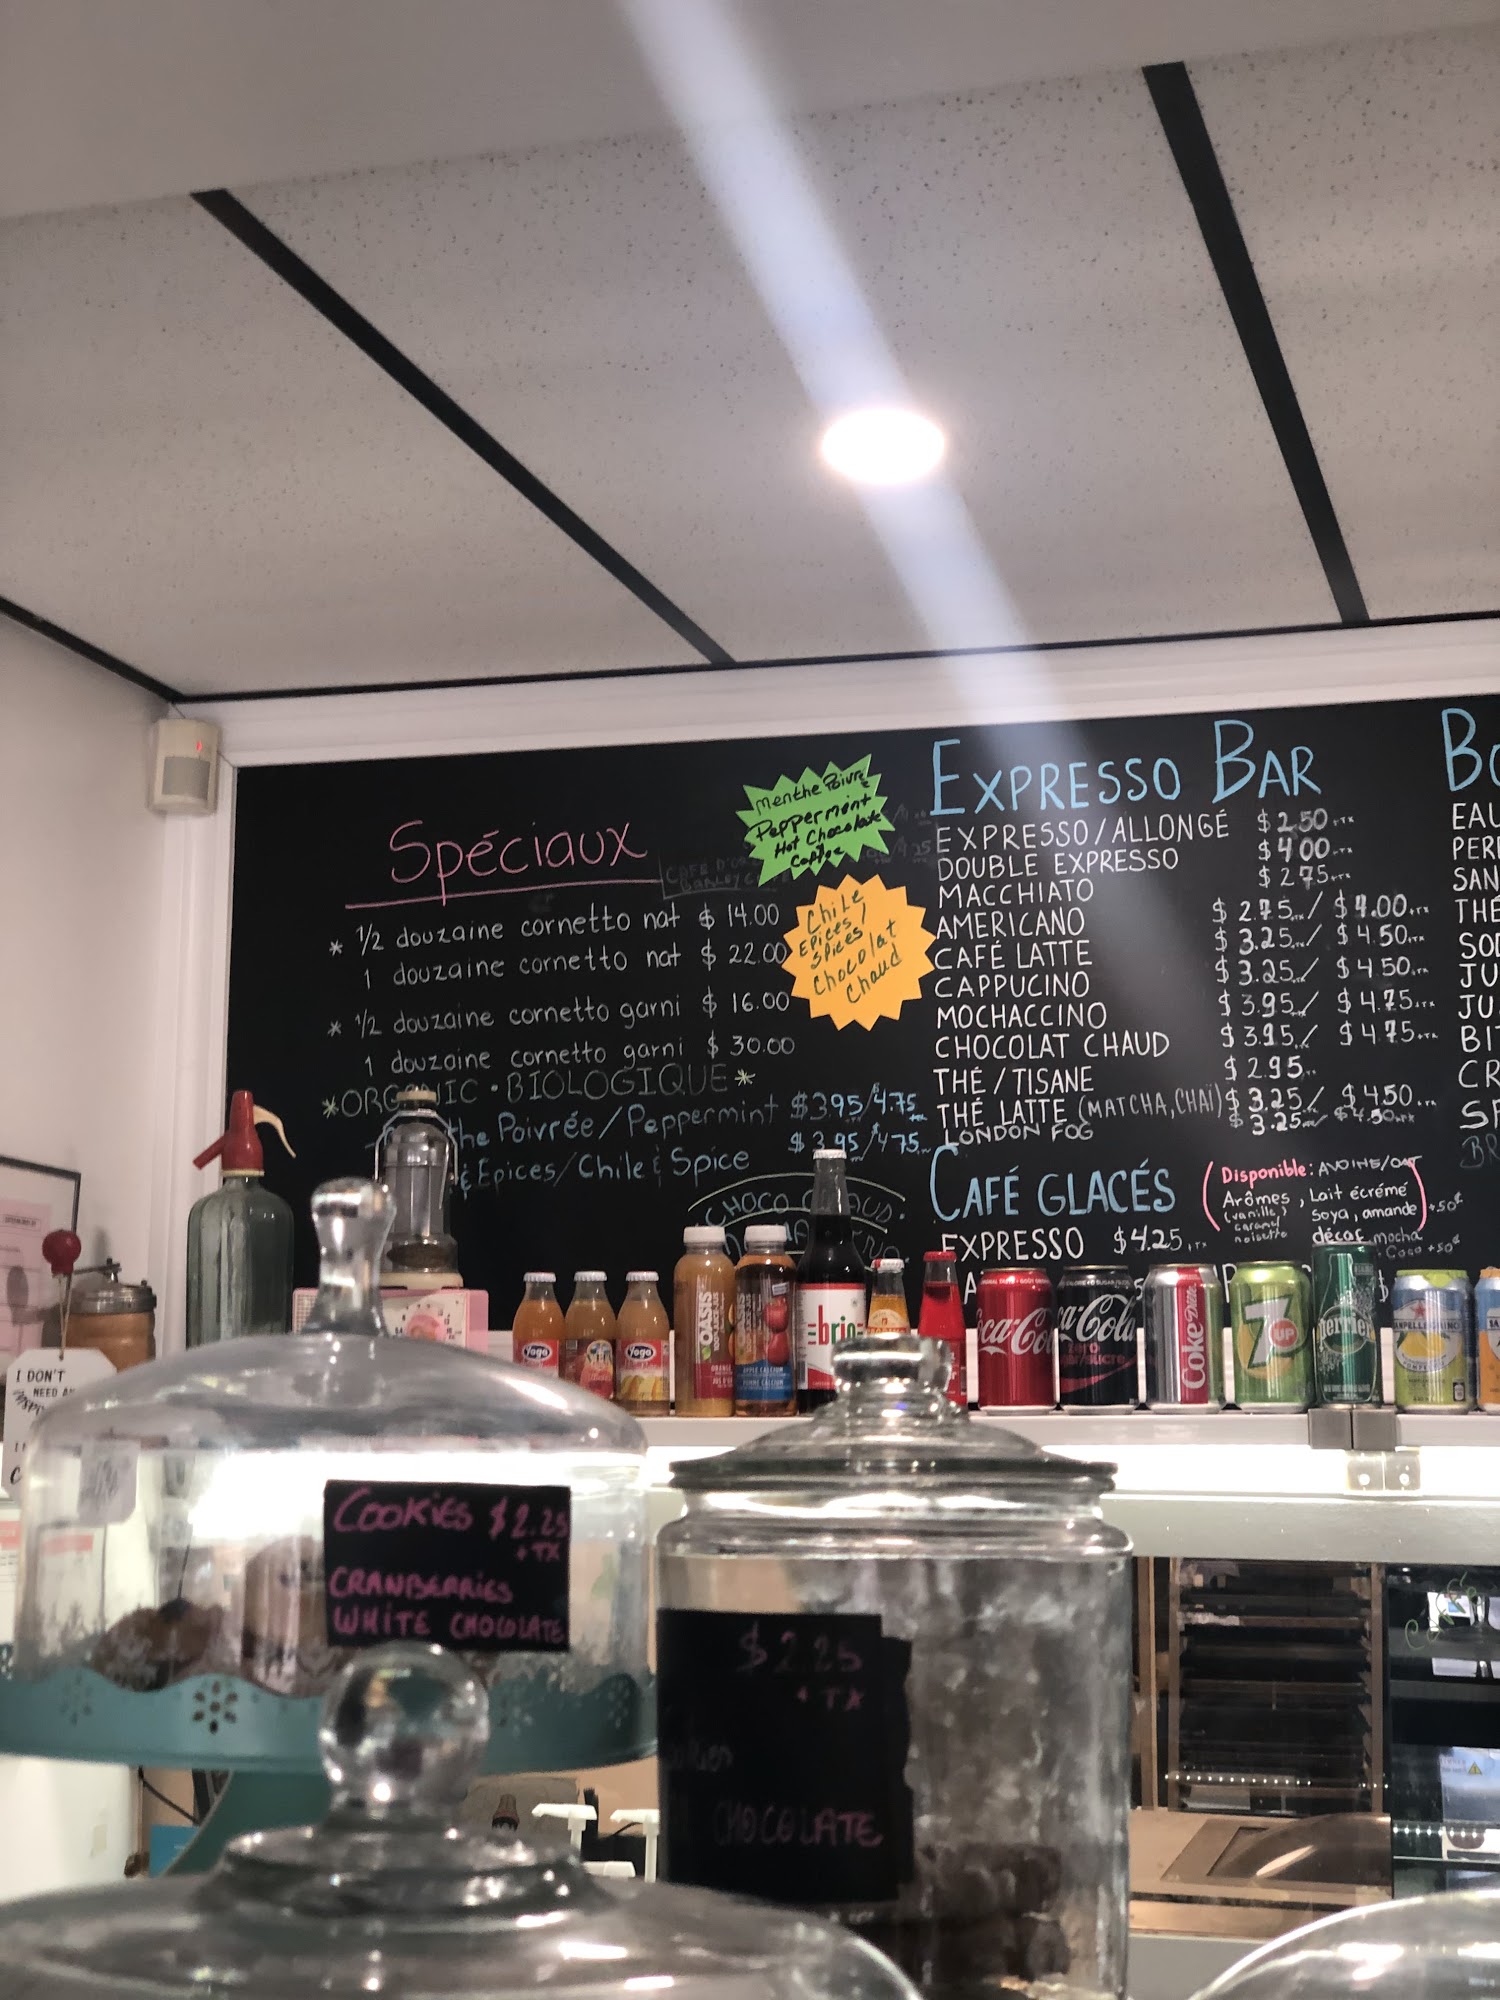 Spéciaux
* 1/2 douzaine cornetto nat $ 14.00
1 douzaine cornetto nat $ 22.00
* 1/2 douzaine cornetto garni $ 16.00
1 douzaine cornetto garni $ 30.00
*ORGANIC • BIOLOGIQUE*
the Poivrée/Peppermint $3.95/4.75
& Epices/Chile & Spice $3.95/4.75
Menthe Poivre
Peppermint
Hot Chocolate
Coffee
Chile
Epices/
Spices
Chocolat
Chaud
EXPRESSO BAR
EXPRESSO/ALLONGÉ $ 2.50+TX
DOUBLE EXPRESSO $ 4.00+TX
MACCHIATO $ 2.75+TX
AMERICANO $ 2.75+TX/ $4.00+TX
CAFÉ LATTE $ 3.25+TX/ $ 4.50+TX
CAPPUCINO $ 3.25+TX/ $ 4.50+TX
MOCHACCINO $ 3.95+TX/ $ 4.75+TX
CHOCOLAT CHAUD $ 3.95/ $ 4.75+TX
THÉ / TISANE $ 2.95
THÉ LATTE (MATCHA, CHAI) $ 3.25/ $ 4.50+TX
LONDON FOG $ 3.25+TX/ $4.50+TX
CAFÉ GLACÉS
EXPRESSO $4.25+TX
Disponible: AVOINE/OAT
Arômes, Lait écrémé
(vanille, soya, amande
caramel
noisette
décaf, mocha
+50¢
Coco +50¢
BO
EAU
PER
SAN
THÉ
SO
JU
JU
BIT
CR
S
BR
CHOCO CHAUD
Yoga
Yoga
Yoga
OASIS
OASIS
APPLE CALCIUM
POMME CALCIUM
brio
Coca-Cola
Coca-Cola
Coke Diète
7UP
Perrier
SANPELLEGRINO
I DON'T
NEED A
COOKIES $2.25
+ TX
CRANBERRIES
WHITE CHOCOLATE
$2.25
+ TX
CHOCOLATE